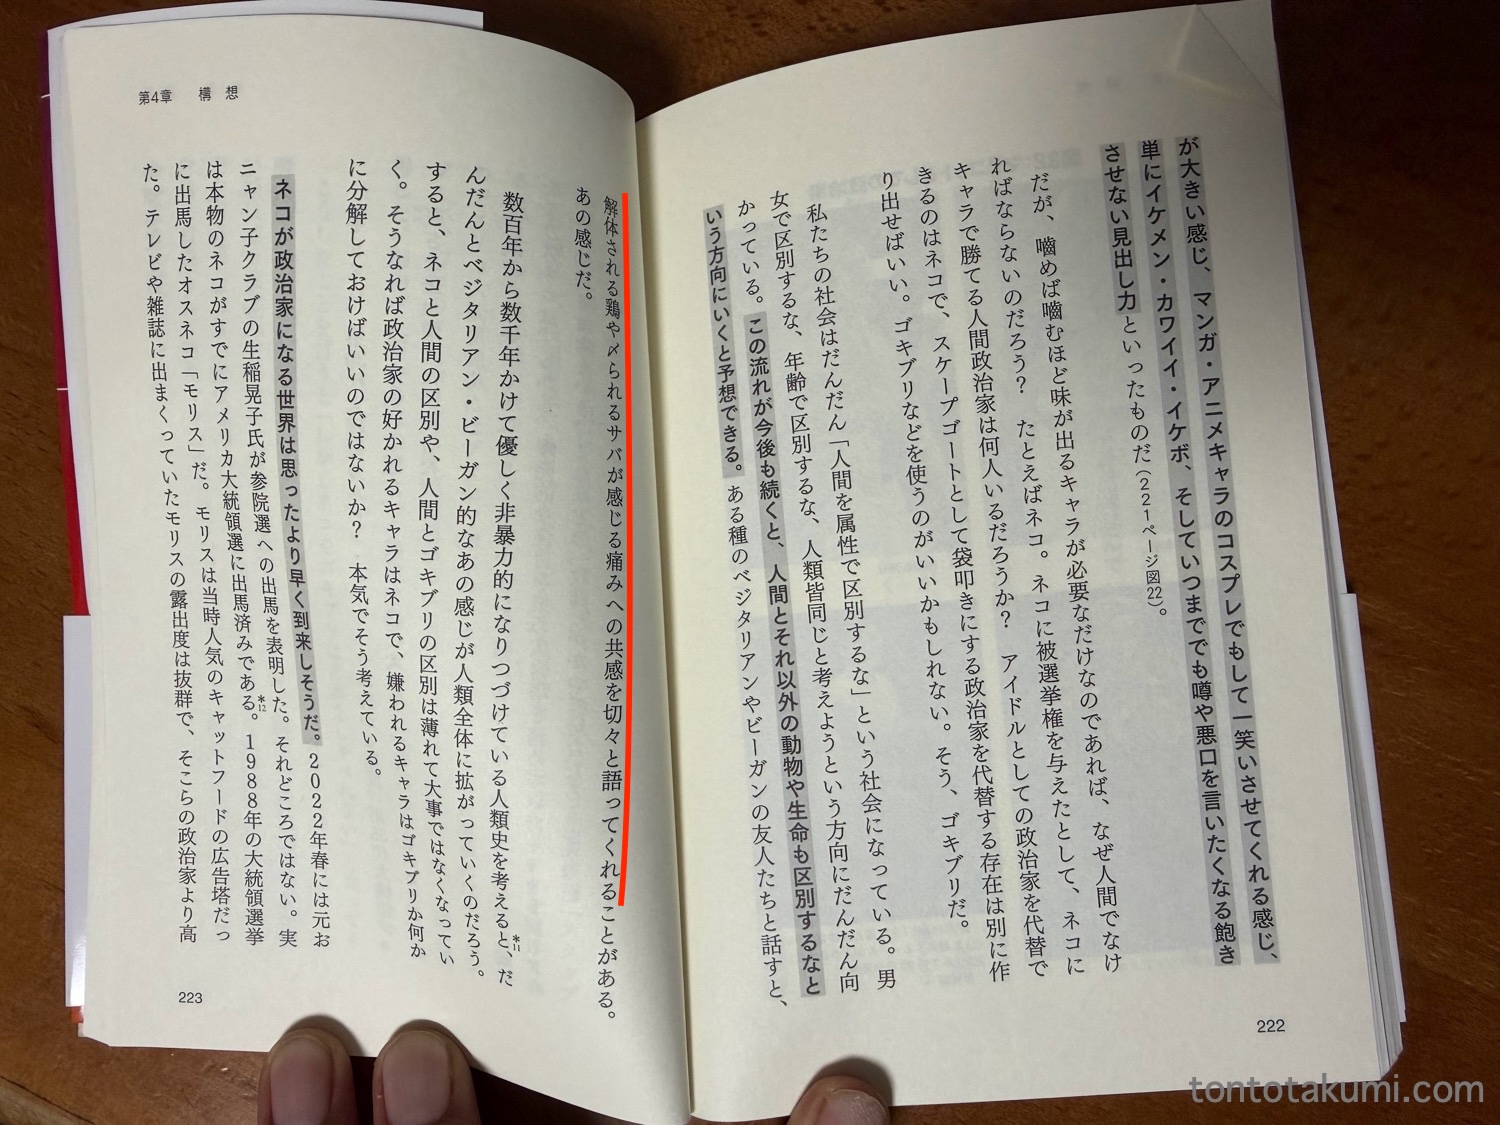 が大きい感じ、マンガ・アニメキャラのコスプレでもして一笑いさせてくれる感じ、
単にイケメン・カワイイ・イケボ、そしていつまででも噂や悪口を言いたくなる飽き
させない見出し力といったものだ（221ページ図22）。
だが、嚙めば嚙むほど味が出るキャラが必要なだけなのであれば、なぜ人間でなけ
ればならないのだろう？　たとえばネコ。ネコに被選挙権を与えたとして、ネコに
キャラで勝てる人間政治家は何人いるだろうか？　アイドルとしての政治家を代替で
きるのはネコで、スケープゴートとして袋叩きにする政治家を代替する存在は別に作
り出せばいい。ゴキブリなどを使うのがいいかもしれない。そう、ゴキブリだ。
私たちの社会はだんだん「人間を属性で区別するな」という社会になっている。男
女で区別するな、年齢で区別するな、人類皆同じと考えようという方向にだんだん向
かっている。この流れが今後も続くと、人間とそれ以外の動物や生命も区別するなと
いう方向にいくと予想できる。ある種のベジタリアンやビーガンの友人たちと話すと、
222
第4章　構想
解体される鶏や〆られるサバが感じる痛みへの共感を切々と語ってくれることがある。
あの感じだ。
数百年から数千年かけて優しく非暴力的になりつづけている人類史を考えると、だ
＊11
んだんとベジタリアン・ビーガン的なあの感じが人類全体に拡がっていくのだろう。
すると、ネコと人間の区別や、人間とゴキブリの区別は薄れて大事ではなくなってい
く。そうなれば政治家の好かれるキャラはネコで、嫌われるキャラはゴキブリか何か
に分解しておけばいいのではないか？　本気でそう考えている。
ネコが政治家になる世界は思ったより早く到来しそうだ。2022年春には元お
ニャン子クラブの生稲晃子氏が参院選への出馬を表明した。それどころではない。実
は本物のネコがすでにアメリカ大統領選に出馬済みである。1988年の大統領選挙
＊12
に出馬したオスネコ「モリス」だ。モリスは当時人気のキャットフードの広告塔だっ
た。テレビや雑誌に出まくっていたモリスの露出度は抜群で、そこらの政治家より高
223
tontotakumi.com